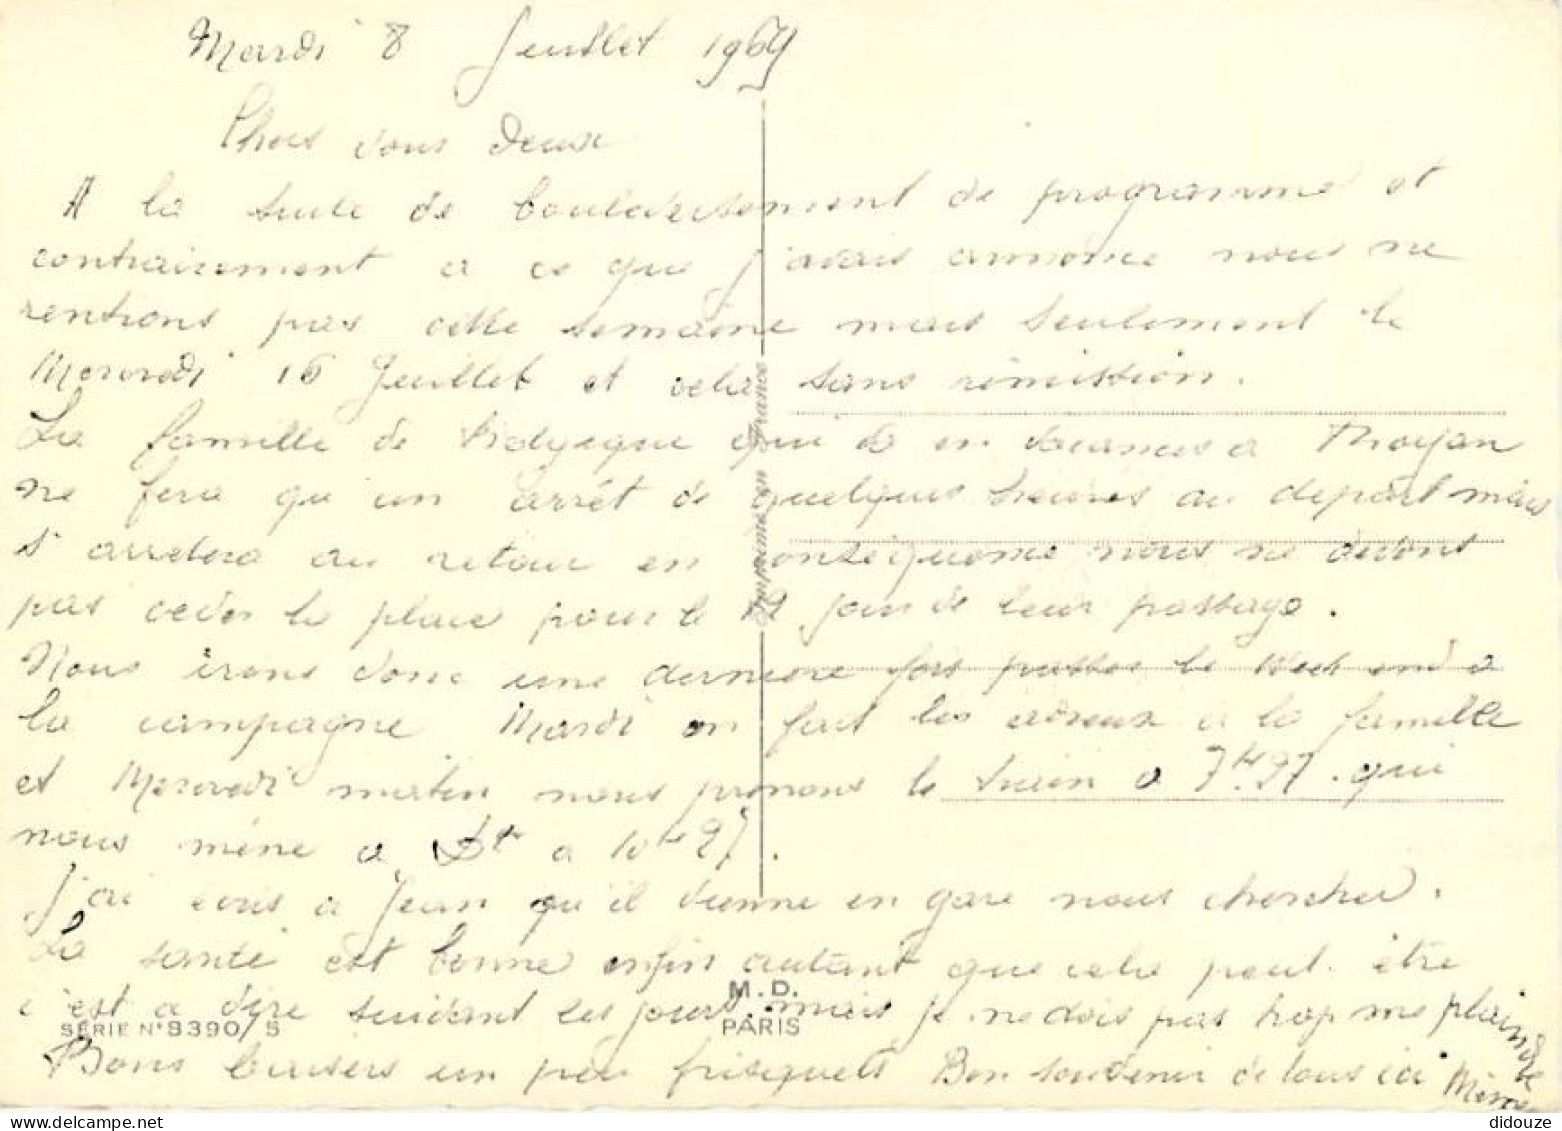 Mardi 8 Juillet 1969
Chers vous deux
A la suite de bouleversement de programme et
contrairement a ce que j'avais annoncé nous ne
rentrons pas cette semaine mais seulement le
Mercredi 16 Juillet et cela sans rémission.
La famille de qui va en vacances a Royan
ne fera qu'un arrêt de quelques heures au depart mais
s'arretera au retour en conséquence nous ne devons
pas ceder la place pour le 19 jour de leur passage.
Nous irons donc une derniere fois passer le Week end a
la campagne Mardi on fait les adieux a la famille
et Mercredi matin nous prenons le train a 7H.27. qui
nous mène a a 10H27.
J'ai ecris a Jean qu'il vienne en gare nous chercher.
La santé est bonne enfin autant que cela peut être
c'est a dire suivant les jours. mais je ne dois pas trop me plaindre
Bons baisers un peu frisquets Bon souvenir de tous ici
Imprimé en France
M.D.
PARIS
SÉRIE N° 8390/5
didouze